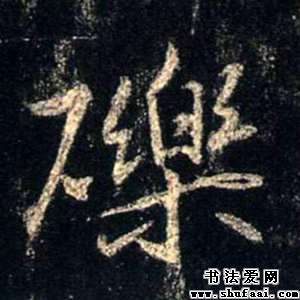 礫
书法爱网
www.shufaai.com